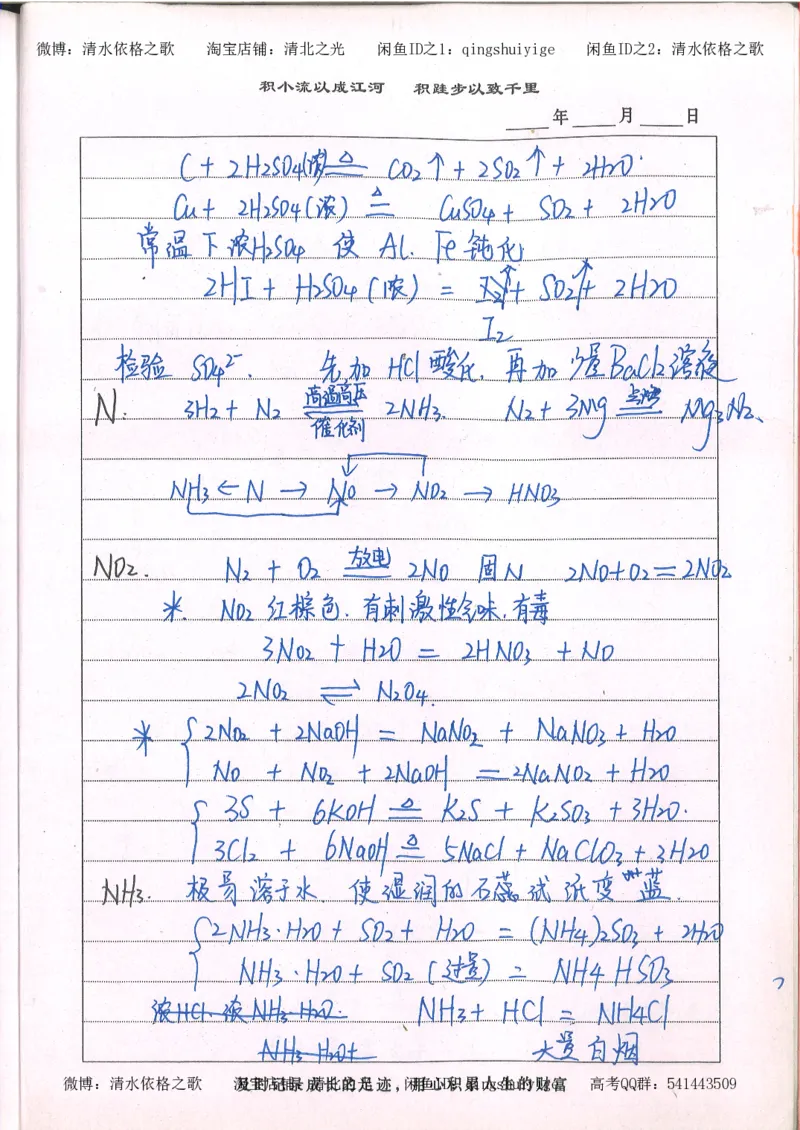 微博：清水依格之歌 淘宝店铺：清北之光 闲鱼ID之1：qingshuiyige 闲鱼ID之2：清水依格之歌
积小流以成江河 积跬步以致千里
年 月 日
C + 2H2SO4(浓) =△= CO2↑ + 2SO2↑ + 2H2O
Cu + 2H2SO4(浓) =△= CuSO4 + SO2 + 2H2O
常温下浓H2SO4 使 Al. Fe 钝化
2HI + H2SO4(浓) = + SO2 + 2H2O
I2
检验 SO4²⁻. 先加 HCl 酸化, 再加 少量 BaCl2 溶液
N. 3H2 + N2 高温高压 催化剂 2NH3. N2 + 3Mg 点燃 Mg3N2、
NH3 ← N → NO → NO2 → HNO3
NO2. N2 + O2 放电 2NO 固N 2NO+O2=2NO2
* NO2 红棕色. 有刺激性气味. 有毒
3NO2 + H2O = 2HNO3 + NO
2NO2 ⇌ N2O4.
* { 2NO2 + 2NaOH = NaNO2 + NaNO3 + H2O
NO + NO2 + 2NaOH = 2NaNO2 + H2O
{ 3S + 6KOH =△= K2S + K2SO3 + 3H2O.
3Cl2 + 6NaOH =△= 5NaCl + NaClO3 + 3H2O
NH3. 极易溶于水. 使湿润的石蕊试纸变蓝.
{ 2NH3·H2O + SO2 + H2O = (NH4)2SO3 + 2H2O
NH3·H2O + SO2 (过量) = NH4HSO3
浓HCl. 浓NH3·H2O. NH3 + HCl = NH4Cl
NH3·H2O+ 大量白烟
及时记录成长的足迹，用心积累人生的财富
微博：清水依格之歌 淘宝店铺：清北之光 闲鱼ID：qingshuiyige 高考QQ群：541443509